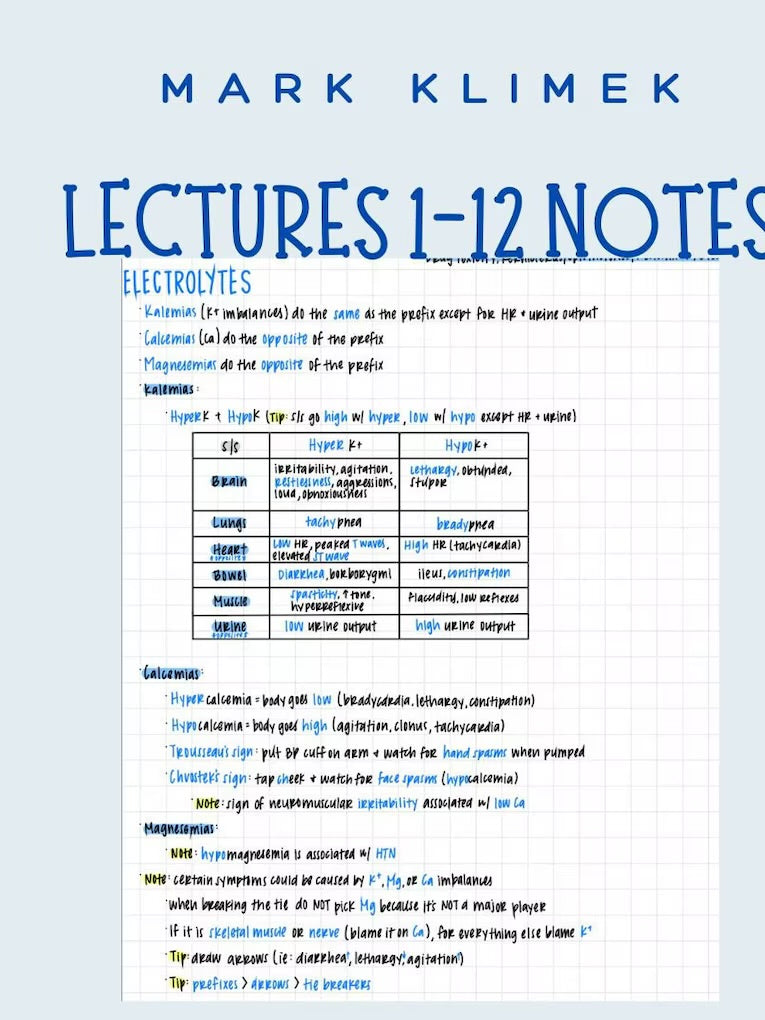 MARK KLIMEK
LECTURES 1-12 NOTES
ELECTROLYTES
· Kalemias (K+ imbalances) do the same as the prefix except for HR + urine output
· Calcemias (Ca) do the opposite of the prefix
· Magnesemias do the opposite of the prefix
· Kalemias:
· HyperK + HypoK (Tip: s/s go high w/ hyper, low w/ hypo except HR + urine)
s/s Hyper K+ Hypo K+
Brain irritability, agitation, restlessness, aggressions, loud, obnoxiousness lethargy, obtunded, stupor
Lungs tachypnea bradypnea
Heart *opposites* Low HR, peaked T waves, elevated ST wave High HR (tachycardia)
Bowel Diarrhea, borborygmi ileus, constipation
Muscle spasticity, ↑ tone, hyperreflexive flaccidity, low reflexes
Urine *opposites* low urine output high urine output
· Calcemias:
· Hypercalcemia = body goes low (bradycardia, lethargy, constipation)
· Hypocalcemia = body goes high (agitation, clonus, tachycardia)
· Trousseau's sign: put BP cuff on arm + watch for hand spasms when pumped
· Chvostek's sign: tap cheek + watch for face spasms (hypocalcemia)
Note: sign of neuromuscular irritability associated w/ low Ca
· Magnesemias:
· Note: hypomagnesemia is associated w/ HTN
· Note: certain symptoms could be caused by K+, Mg, or Ca imbalances
· when breaking the tie do NOT pick Mg because it's NOT a major player
· If it is skeletal muscle or nerve (blame it on Ca), for everything else blame K+
· Tip: draw arrows (ie: diarrhea↑, lethargy↓, agitation↑)
· Tip: prefixes > arrows > tie breakers